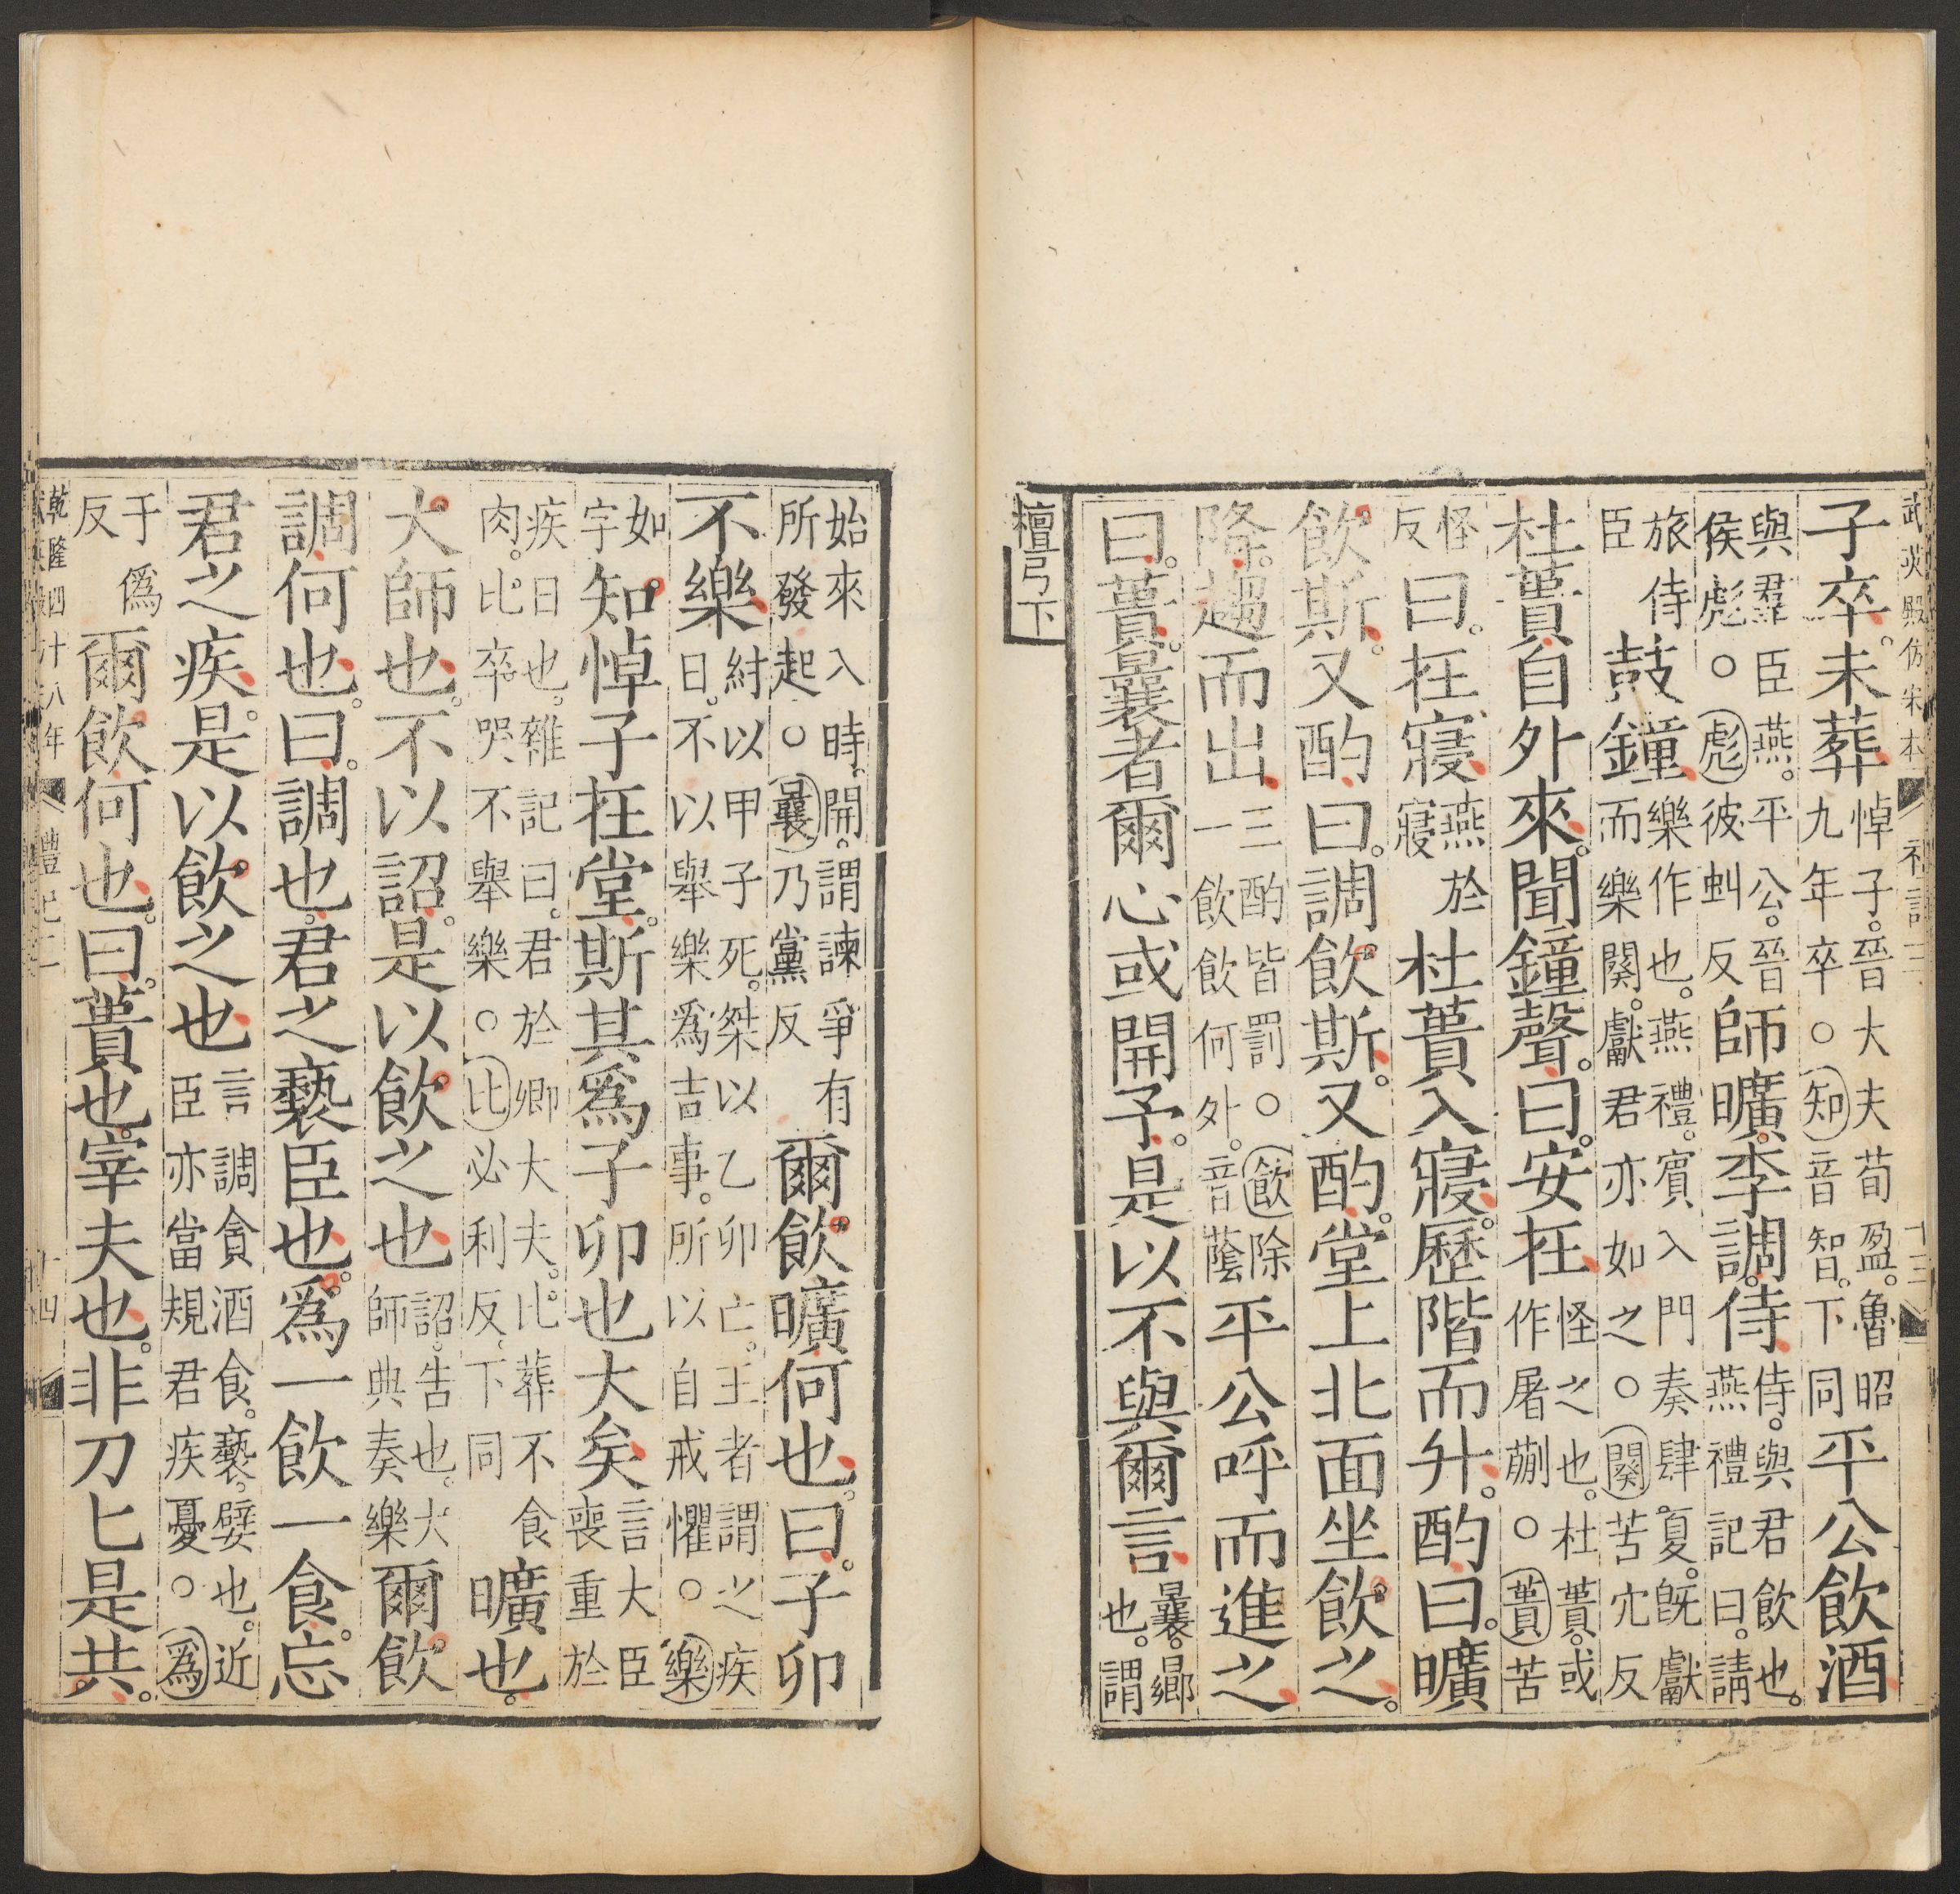 武英殿仿宋本
子卒。未葬悼子。晉大夫荀盈。魯昭九年卒○知音智。下同平公飲酒
與羣臣燕。平公。晉侯彪○彪彼虯反師曠李調侍侍。與君飲也。燕禮記曰。請
旅侍臣鼓鐘樂作也。燕禮。賓入門奏肆夏。旣獻而樂闋。獻君亦如之○闋苦穴反
杜蕢自外來。聞鐘聲。曰。安在怪之也。杜蕢。或作屠蒯○蕢苦
怪反曰。在寢燕於寢杜蕢入寢。歷階而升。酌曰。曠
飲斯。又酌曰。調飲斯。又酌。堂上北面坐飲之。
降。趨而出三酌皆罰○飲除一飲飲何外。音蔭平公呼而進之
曰。蕢。曩者爾心或開予。是以不與爾言曩。曏也。謂
檀弓下
始來入時。開。謂諫爭有所發起○曩乃黨反爾飲曠何也。曰。子卯
不樂紂以甲子死。桀以乙卯亡。王者謂之疾日。不以舉樂爲吉事。所以自戒懼○樂
如字知悼子在堂。斯其爲子卯也大矣言大臣喪重於
疾日也。雜記曰。君於卿大夫。比葬不食肉。比卒哭不舉樂○比必利反。下同曠也。
大師也。不以詔。是以飲之也詔。告也。大師典奏樂爾飲
調何也。曰。調也。君之褻臣也。爲一飲一食。忘
君之疾。是以飲之也言調貪酒食。褻。嬖也。近臣亦當規君疾憂○爲
于僞反爾飲何也。曰。蕢也。宰夫也。非刀匕是共。
乾隆四十八年 禮記二 十四